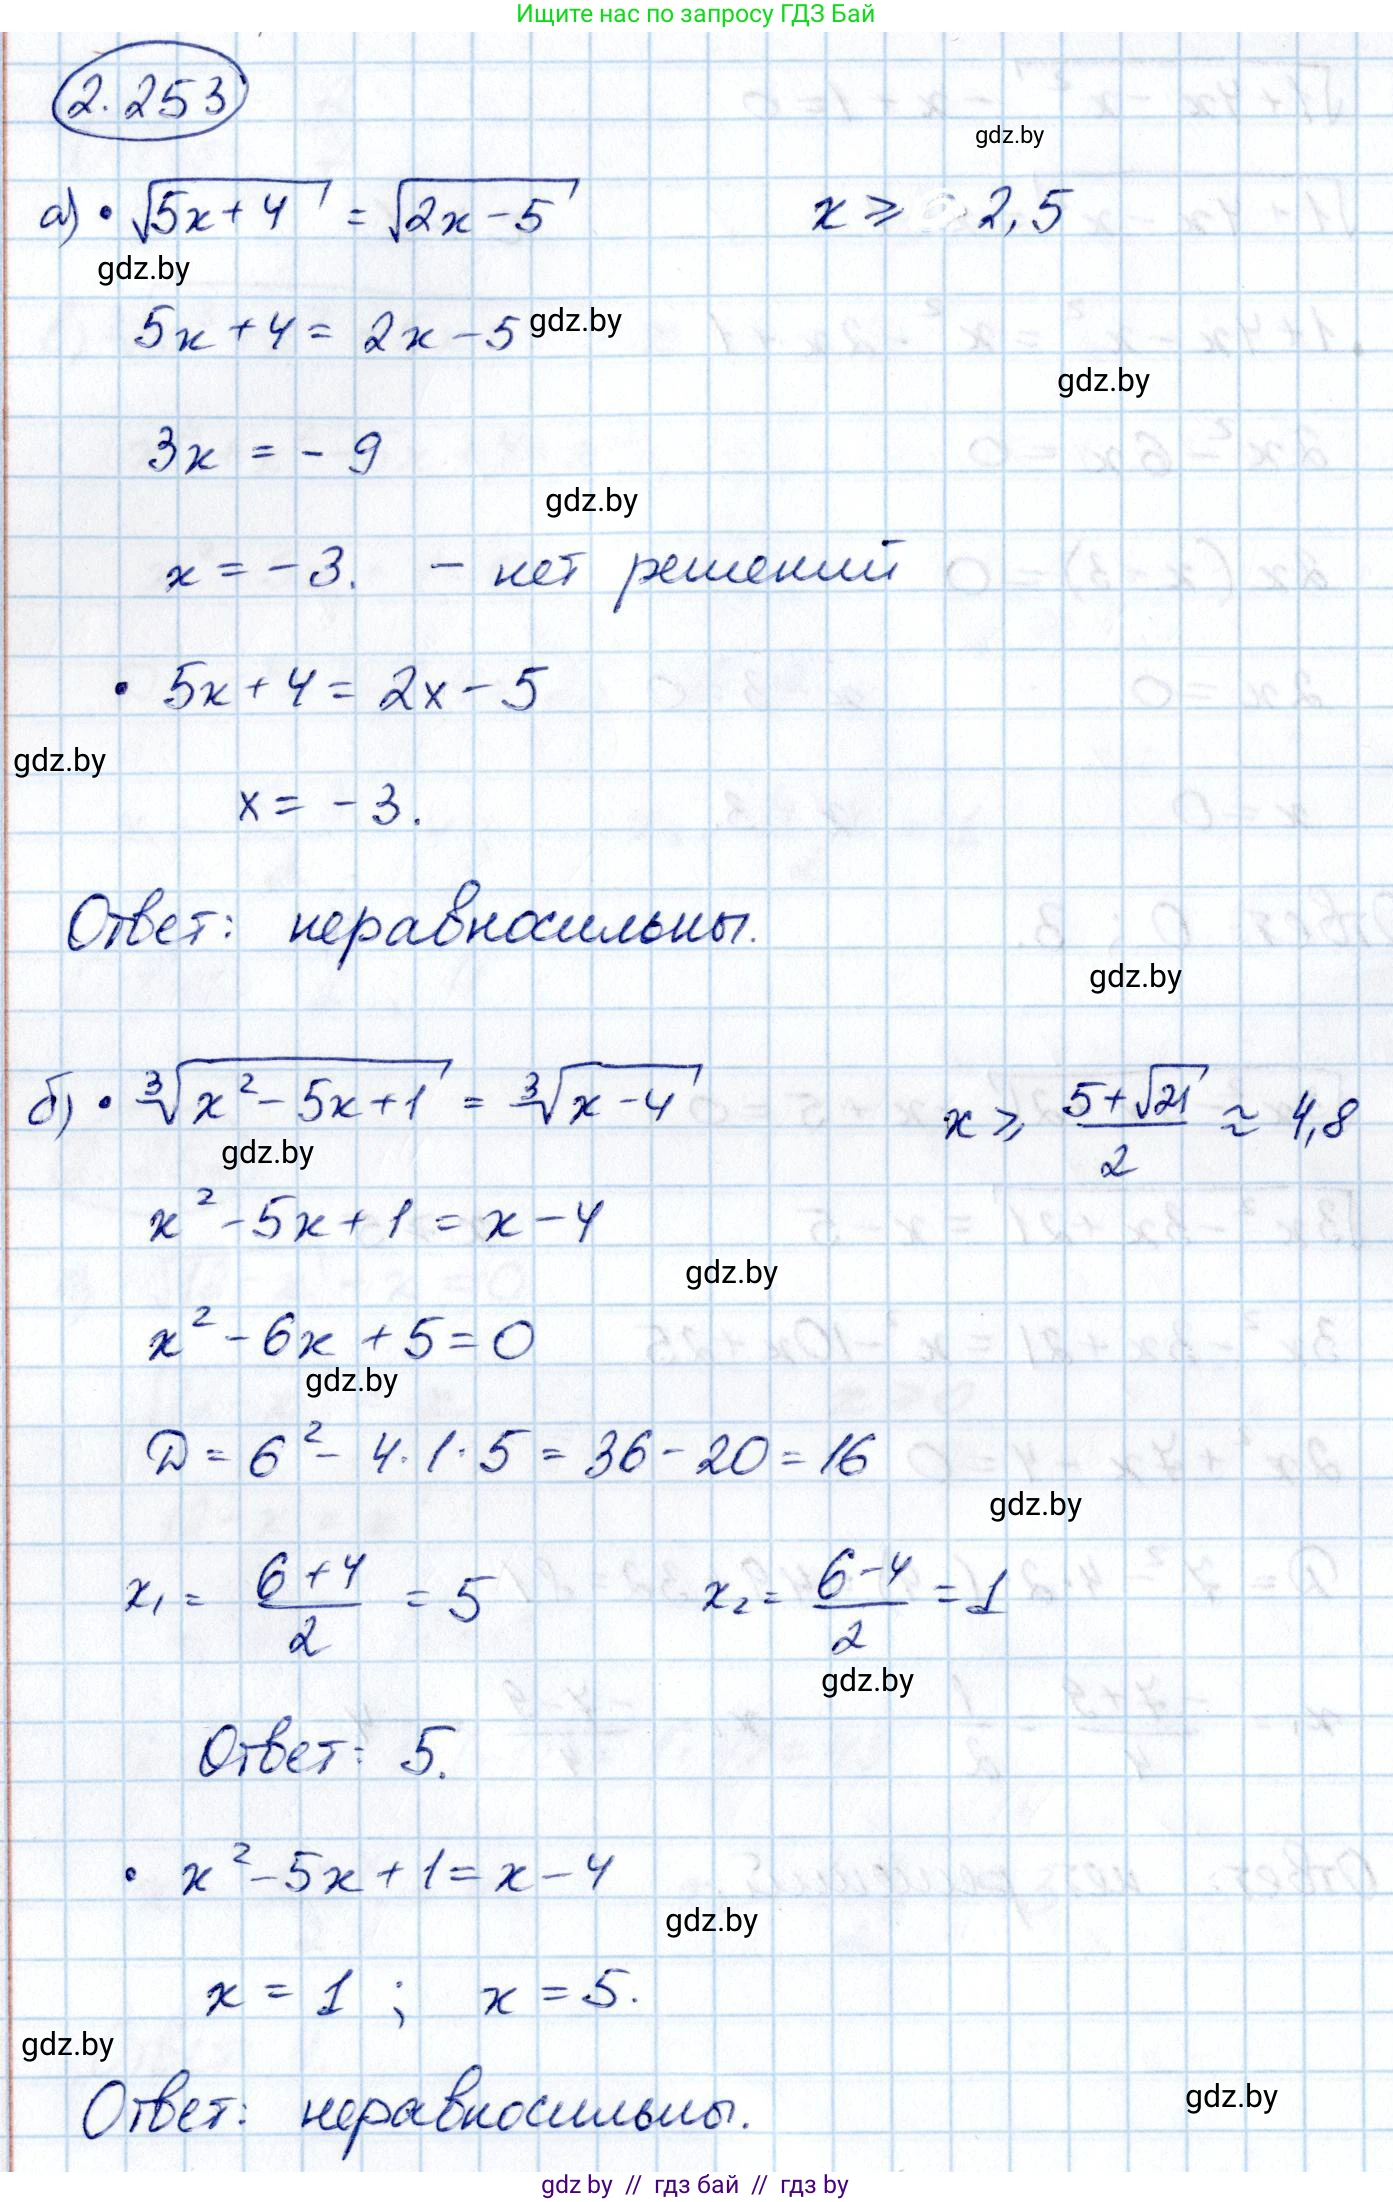 Ищите нас по запросу ГДЗ Бай
2.253
gdz.by
а) • √(5x+4) = √(2x-5)    x ⩾ 2,5
gdz.by
5x+4 = 2x-5 gdz.by
gdz.by
3x = -9
gdz.by
x = -3. - нет решений
• 5x+4 = 2x-5
gdz.by
x = -3.
Ответ: неравносильны.
gdz.by
б) • ∛(x²-5x+1) = ∛(x-4)    x ⩾ (5+√21)/2 ≈ 4,8
gdz.by
x²-5x+1 = x-4
gdz.by
x²-6x+5=0
gdz.by
D = 6²- 4·1·5 = 36-20=16
gdz.by
x₁ = (6+4)/2 = 5    x₂ = (6-4)/2 = 1
gdz.by
Ответ: 5.
• x²-5x+1=x-4
gdz.by
x = 1 ; x = 5.
gdz.by
Ответ: неравносильны.
gdz.by
gdz by // гдз бай // гдз by